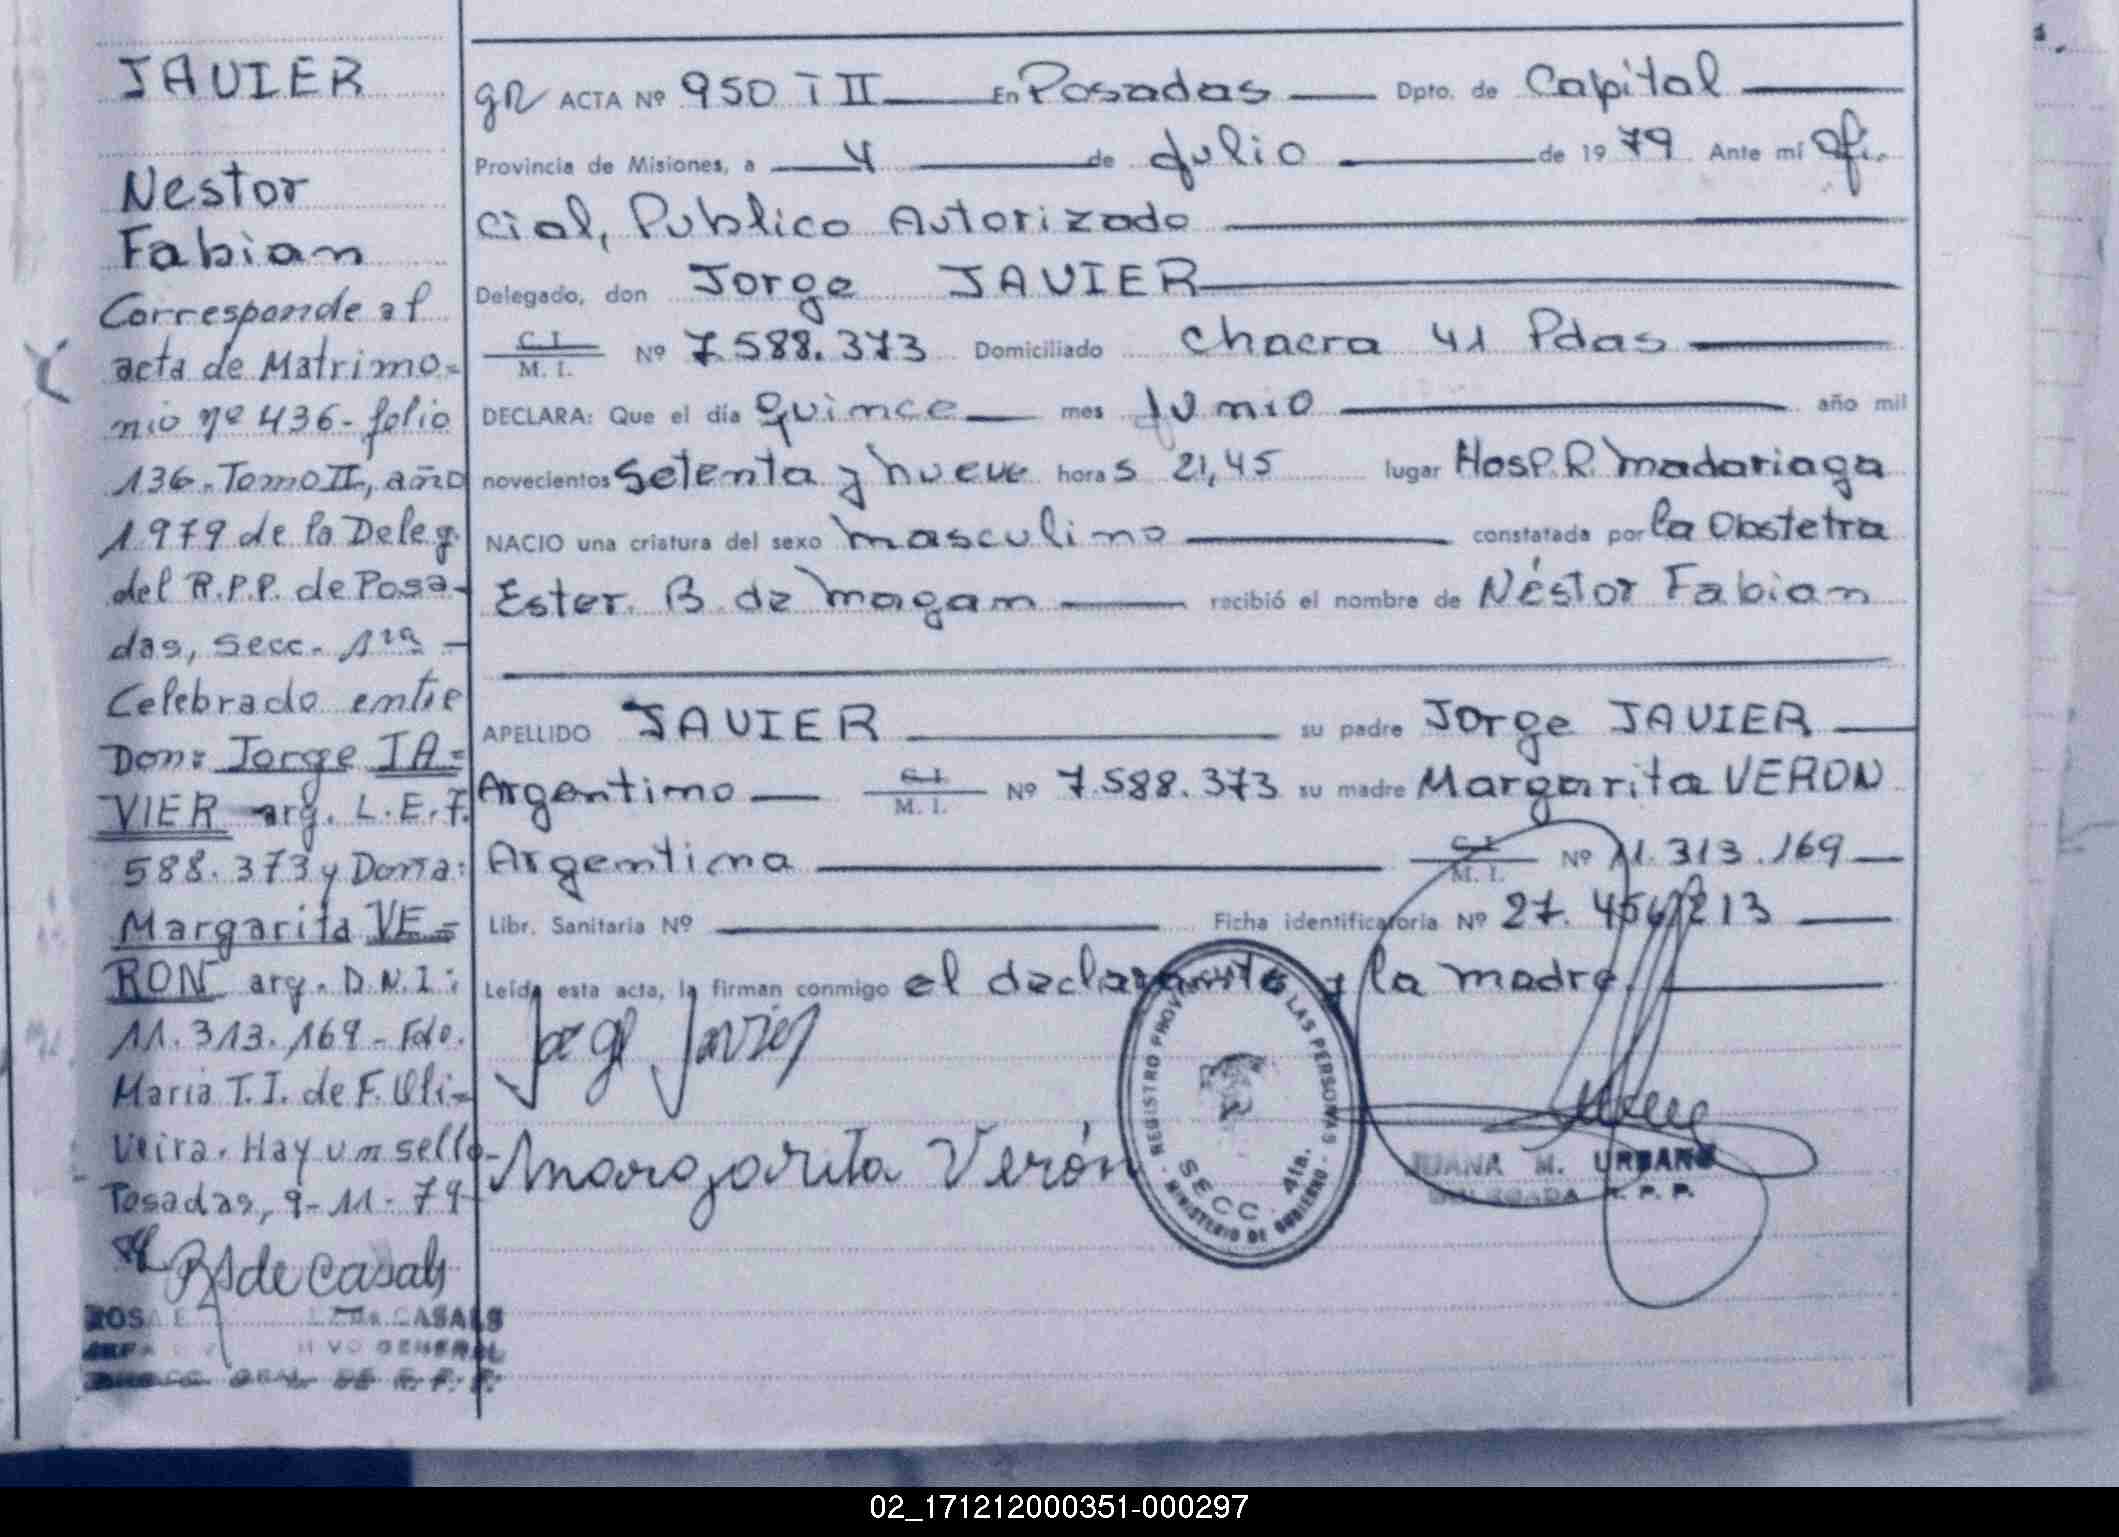 JAVIER
Nestor
Fabian
Corresponde al
acta de Matrimo=
nio nº 436- folio
136- Tomo II, año
1979 de la Deleg.
del R.P.P. de Posa-
das, Secc. 1ra -
Celebrado entre
Don: Jorge JA=
VIER arg. L.E. 7.
588.373 y Doña:
Margarita VE=
RON arg. D.N.I:
11.313.169 - Fdo.
Maria T.I. de F. Oli-
veira. Hay un sello-
Posadas, 9-11-79-
de Casals
CASALS
GENERAL
ACTA Nº 950 T II En Posadas Dpto. de Capital
Provincia de Misiones, a 4 de Julio de 1979 Ante mí Ofi-
cial, Publico Autorizado
Delegado, don Jorge JAVIER
C. I.
M. I. Nº 7.588.373 Domiciliado Chacra 41 Pdas
DECLARA: Que el día quince mes Junio año mil
novecientos Setenta y nueve horas 21,45 lugar Hosp. R. Madariaga
NACIO una criatura del sexo masculino constatada por la Obstetra
Ester B. de Magam recibió el nombre de Néstor Fabian
APELLIDO JAVIER su padre Jorge JAVIER
Argentino C. I. M. I. Nº 7.588.373 su madre Margarita VERON
Argentina C. I. M. I. Nº 11.313.169
Libr. Sanitaria Nº Ficha identificatoria Nº 27.456.213
Leída esta acta, la firman conmigo el declarante y la madre.
Jorge Javier
Margarita Verón
REGISTRO PROVINCIAL DE LAS PERSONAS
SECC. 4ta.
MINISTERIO DE GOBIERNO
JUANA M. URBANO
DELEGADA R. P. P.
02_171212000351-000297